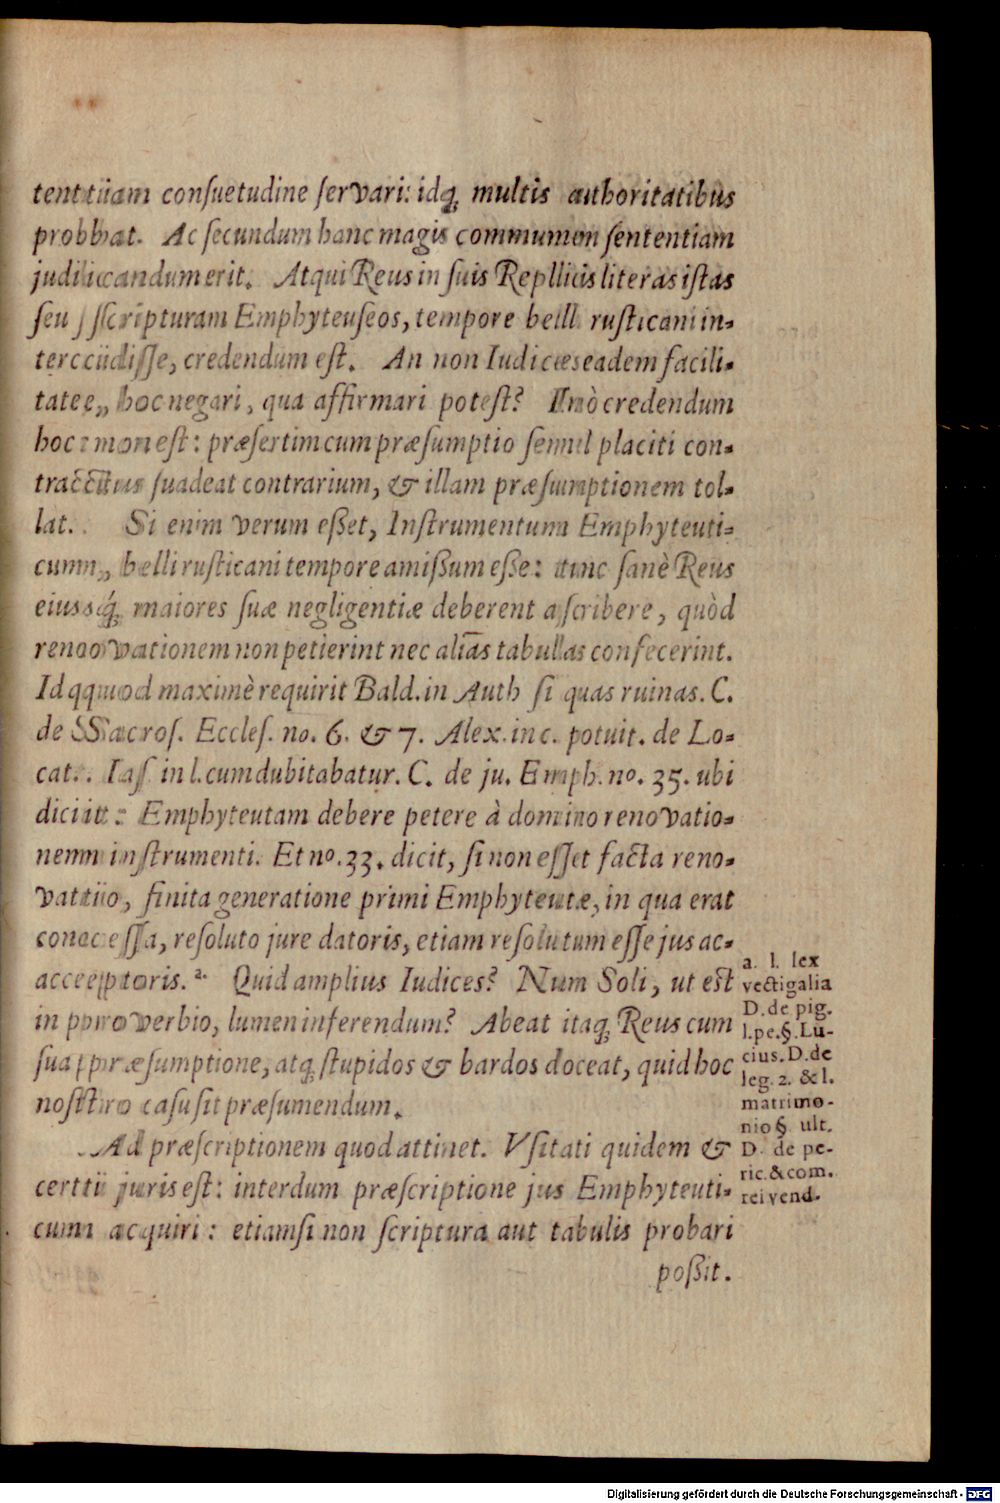 tentiam conſuetudine ſervari: idq́; multis authoritatibus
probbat. Ac ſecundum hanc magis communem ſententiam
judicandum erit. Atqui Reus in ſuis Replicis literas iſtas
ſeu ſcripturam Emphyteuſeos, tempore belli ruſticani in-
tercidiſſe, credendum eſt. An non Iudices eadem facili-
tate, hoc negari, qua affirmari poteſt? Imò credendum
hoc non eſt: præſertim cum præſumptio ſemel placiti con-
tractus ſuadeat contrarium, & illam præſumptionem tol-
lat. Si enim verum eßet, Inſtrumentum Emphyteuti-
cum, belli ruſticani tempore amißum eſſe: tunc ſanè Reus
eiusq́; maiores ſuæ negligentiæ deberent aſcribere, quòd
renovationem non petierint nec aliàs tabullas confecerint.
Id quod maximè requirit Bald. in Auth ſi quas ruinas. C.
de Sacroſ. Eccleſ. no. 6. & 7. Alex. in c. potuit. de Lo-
cat. Iaſ in l. cum dubitabatur. C. de ju. Emph. no. 35. ubi
dicit: Emphyteutam debere petere à domino renovatio-
nem inſtrumenti. Et no. 33. dicit, ſi non eſſet facta reno-
vatio, finita generatione primi Emphyteutæ, in qua erat
conceſſa, reſoluto jure datoris, etiam reſolutum eſſe jus ac-
acceptoris. a. Quid amplius Iudices? Num Soli, ut eſt
in proverbio, lumen inferendum? Abeat itaq; Reus cum
ſua præſumptione, atq; ſtupidos & bardos doceat, quid hoc
noſtro caſu ſit præſumendum.
Ad præſcriptionem quod attinet. Vſitati quidem &
certi juris eſt: interdum præſcriptione jus Emphyteuti-
cum acquiri: etiamſi non ſcriptura aut tabulis probari
poßit.
a. l. lex
vectigalia
D. de pig.
l. pe. §. Lu-
cius. D. de
leg. 2. & l.
matrimo-
nio §. ult.
D. de pe-
ric. & com.
rei vend.
Digitalisierung gefördert durch die Deutsche Forschungsgemeinschaft - DFG